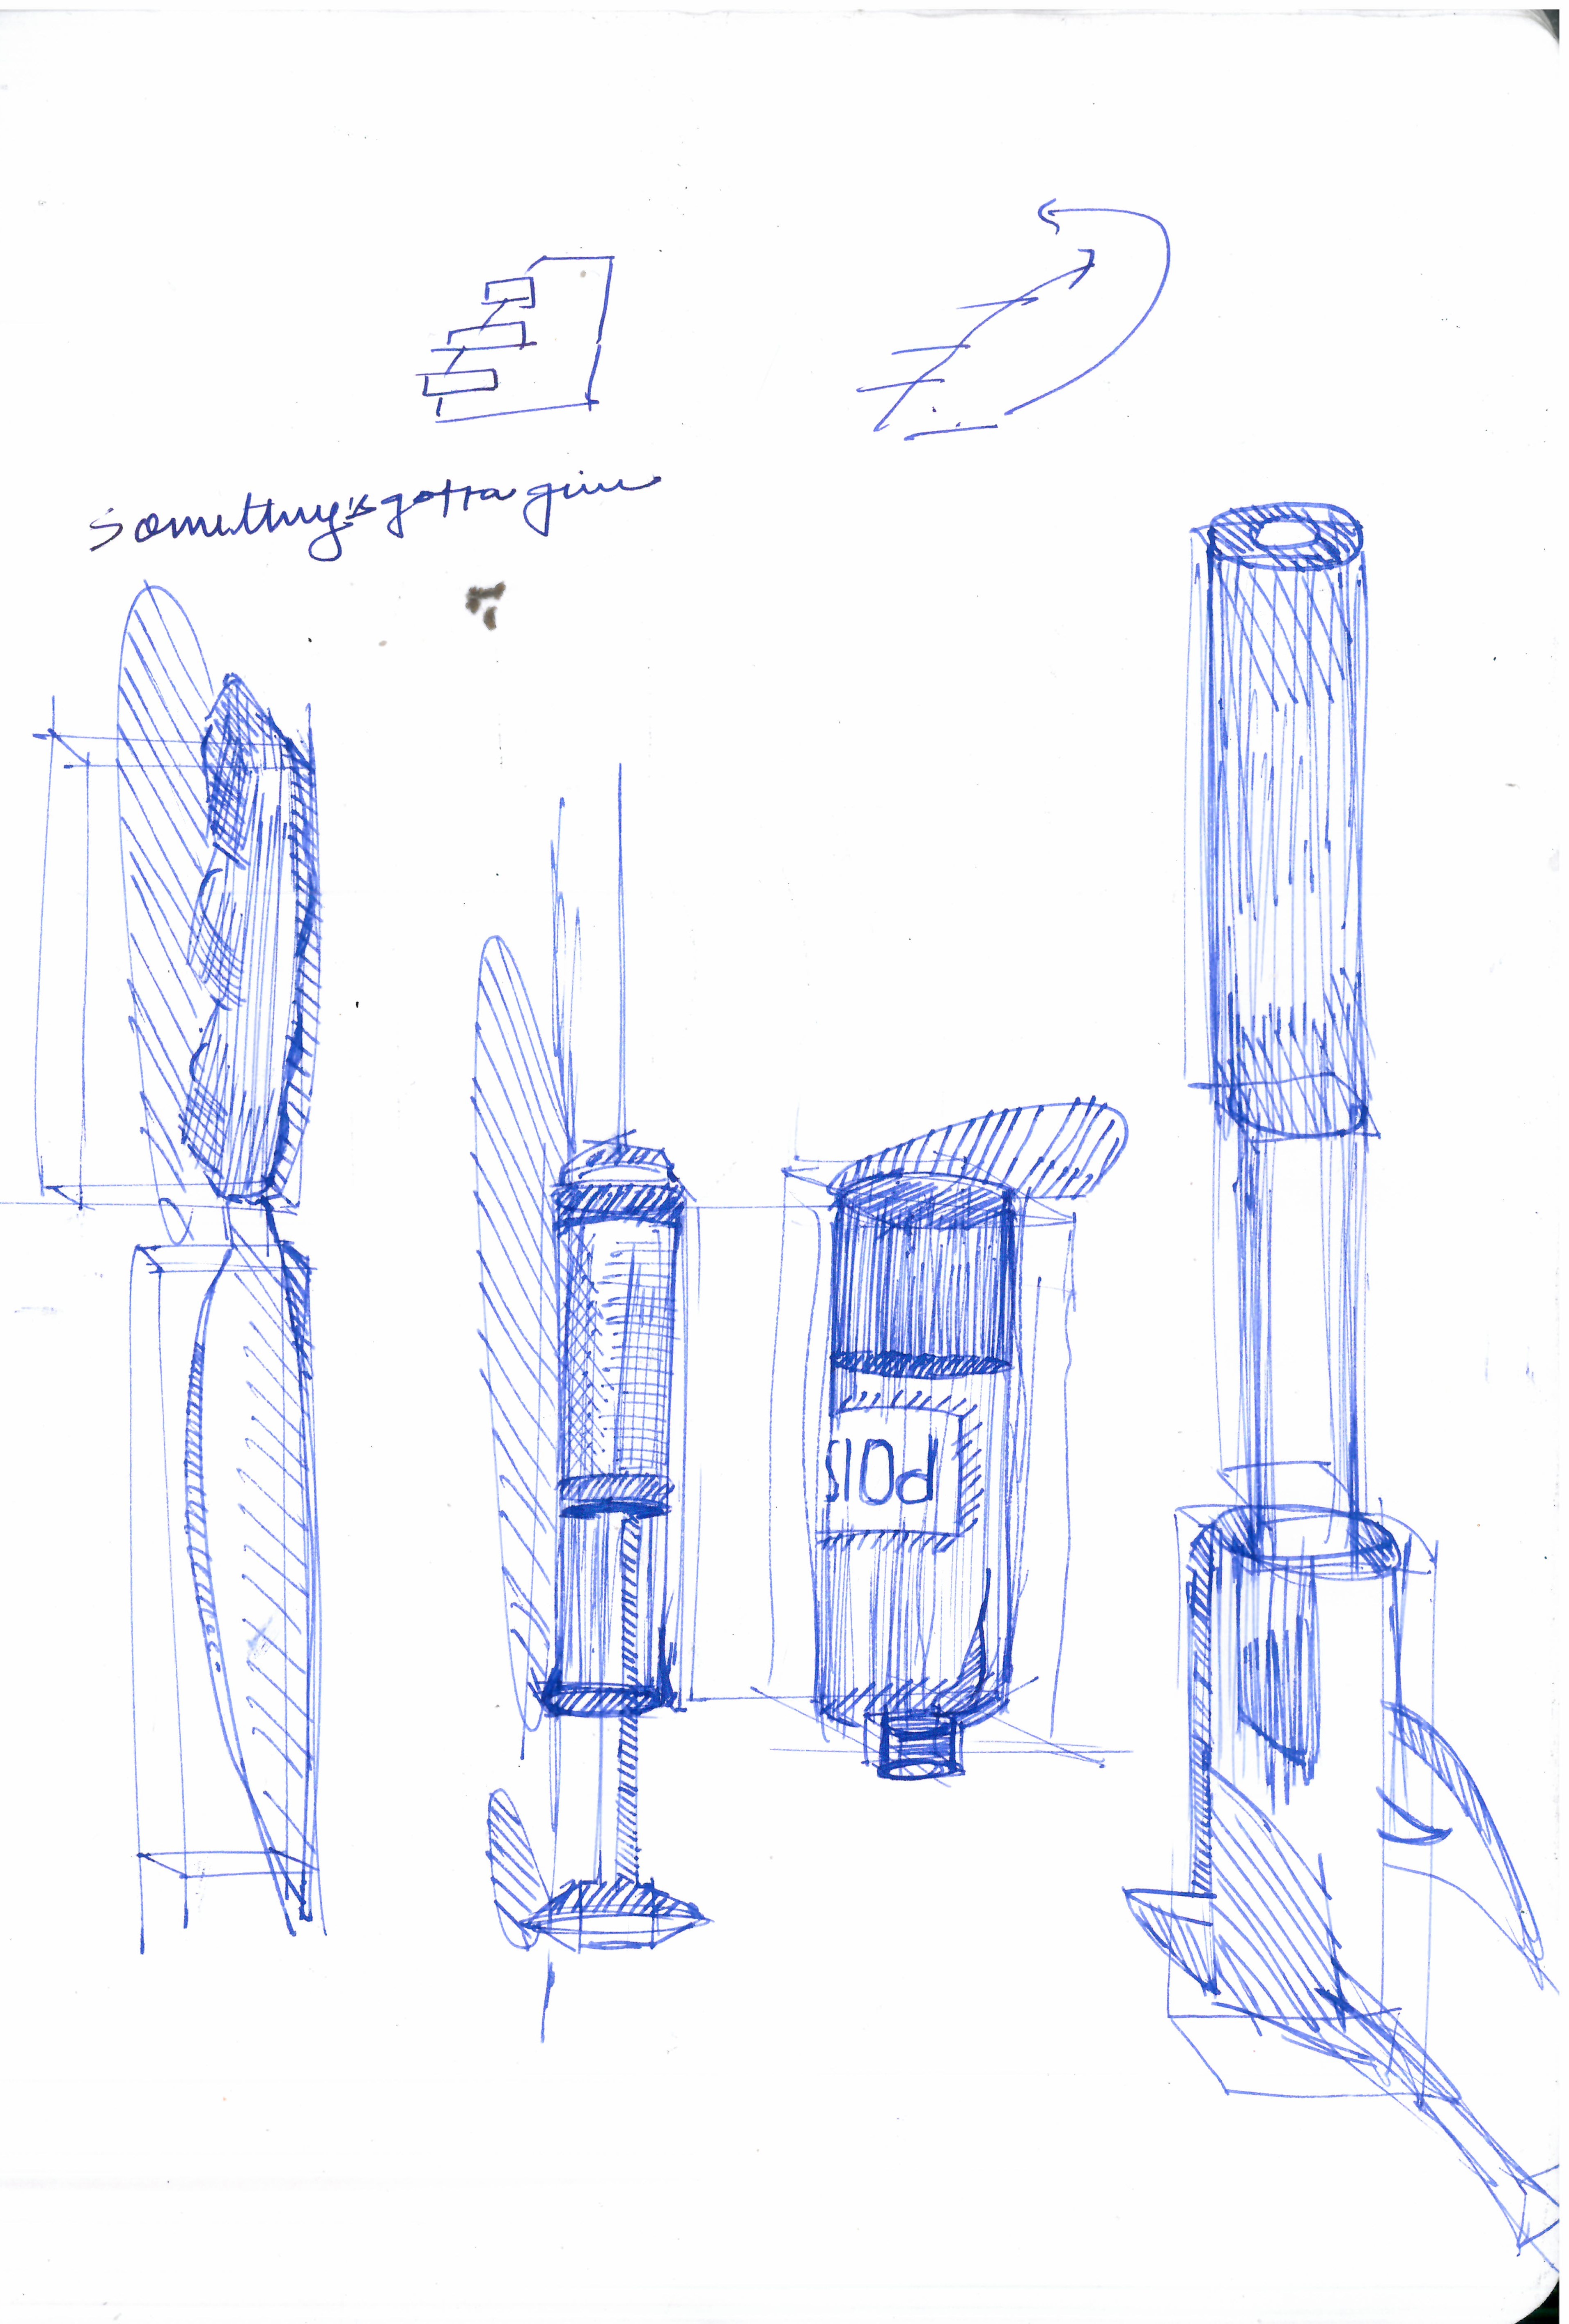 Something's gotta give
POIS